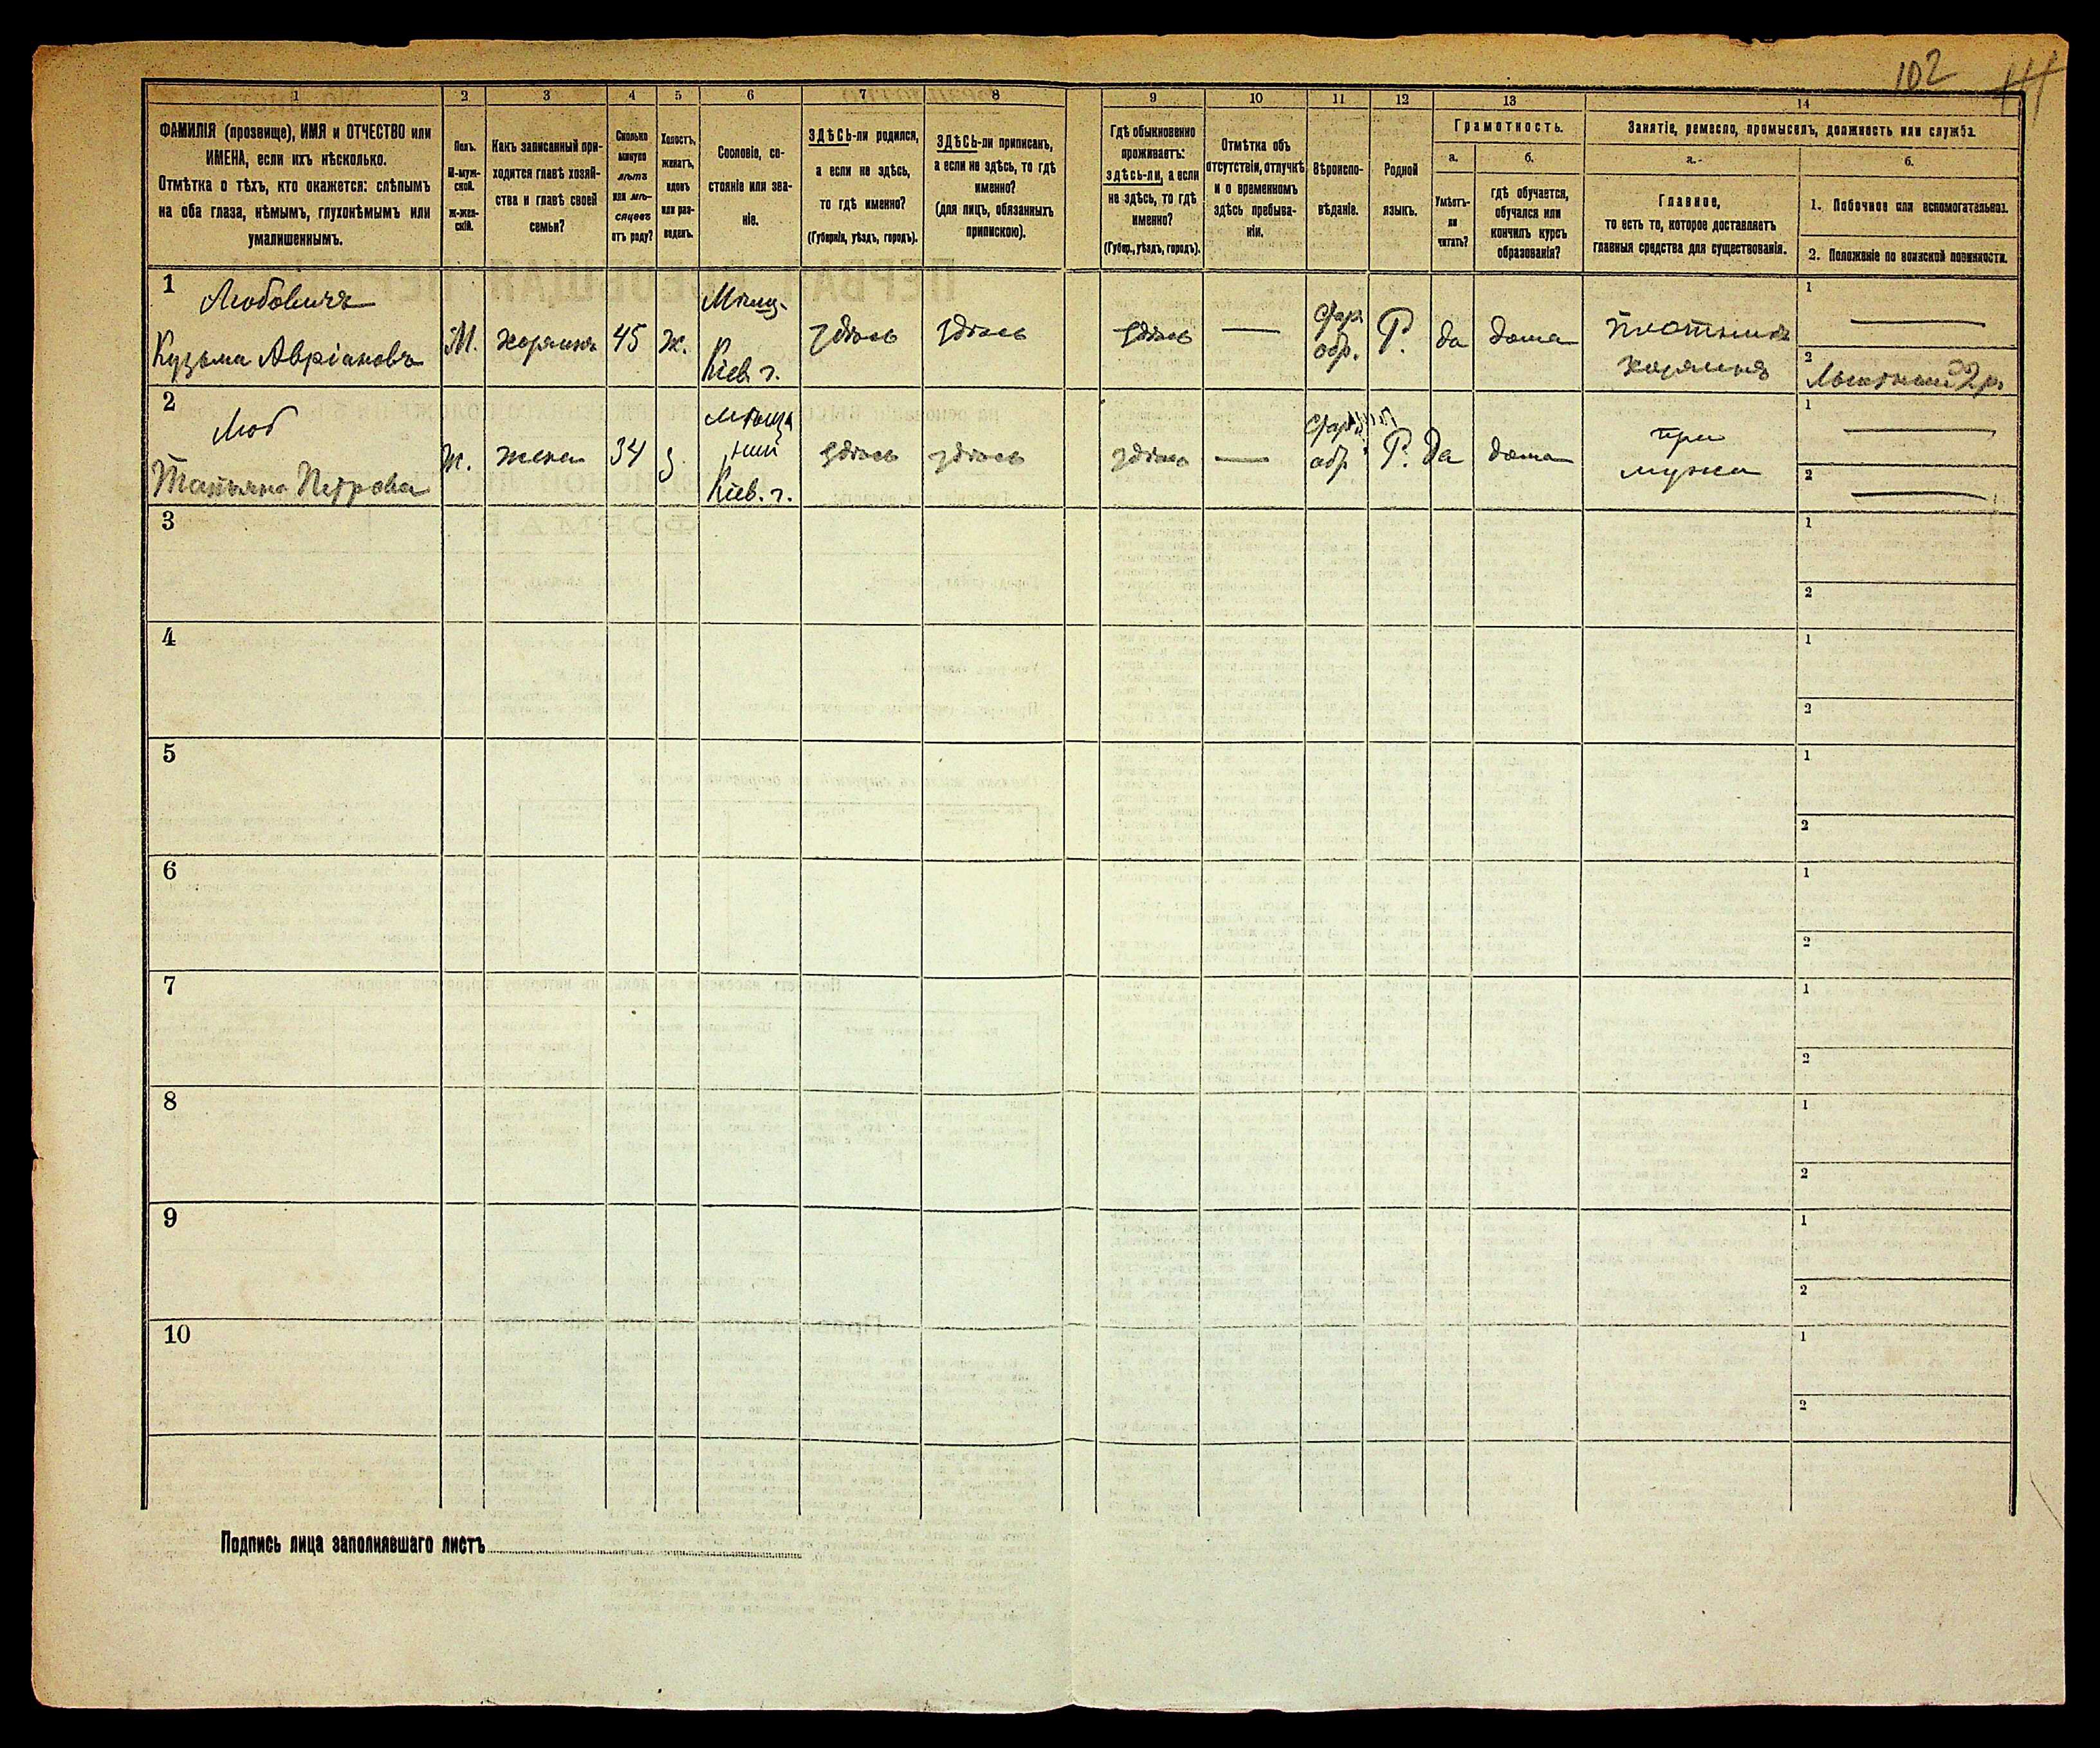 102
1
2
3
4
5
6
7
8
9
10
11
12
13
14
ФАМИЛІЯ (прозвище), ИМЯ и ОТЧЕСТВО или
ИМЕНА, если ихъ нѣсколько.
Отмѣтка о тѣхъ, кто окажется: слѣпымъ
на оба глаза, нѣмымъ, глухонѣмымъ или
умалишеннымъ.
Полъ.
М-муж-
ской.
ж-жен-
скій.
Какъ записанный при-
ходится главѣ хозяй-
ства и главѣ своей
семьи?
Сколько
минуло
лѣтъ
или мѣ-
сяцевъ
отъ роду?
Холостъ,
женатъ,
вдовъ
или раз-
веденъ.
Сословіе, со-
стояніе или зва-
ніе.
ЗДѢСЬ-ли родился,
а если не здѣсь,
то гдѣ именно?
(Губернія, уѣздъ, городъ).
ЗДѢСЬ-ли приписанъ,
а если не здѣсь, то гдѣ
именно?
(для лицъ, обязанныхъ
припискою).
Гдѣ обыкновенно
проживаетъ:
здѣсь-ли, а если
не здѣсь, то гдѣ
именно?
(Губер., уѣздъ, городъ).
Отмѣтка объ
отсутствіи, отлучкѣ
и о временномъ
здѣсь пребыва-
ніи.
Вѣроиспо-
вѣданіе.
Родной
языкъ.
Грамотность.
а.
Умѣетъ-
ли
читать?
б.
гдѣ обучается,
обучался или
кончилъ курсъ
образованія?
Занятіе, ремесло, промыселъ, должность или служба.
а.
Главное,
то есть то, которое доставляетъ
главныя средства для существованія.
б.
1. Побочное или вспомогательное.
2. Положеніе по воинской повинности.
1
Любовичъ
Кузьма Авріановъ
М.
хозяинъ
45
ж.
Мѣщ.
Кіев. г.
здѣсь
здѣсь
здѣсь
—
стар.
обр.
Р.
да
дома
плотникъ
хозяинъ
1
—
2
2
Люб
Татьяна Петрова
ж.
жена
34
з.
мѣща
нин
Кіев. г.
здѣсь
здѣсь
здѣсь
—
стар
обр.
Р.
да
дома
при
мужи
1
—
2
—
3
1
2
4
1
2
5
1
2
6
1
2
7
1
2
8
1
2
9
1
2
10
1
2
Подпись лица заполнявшаго листъ